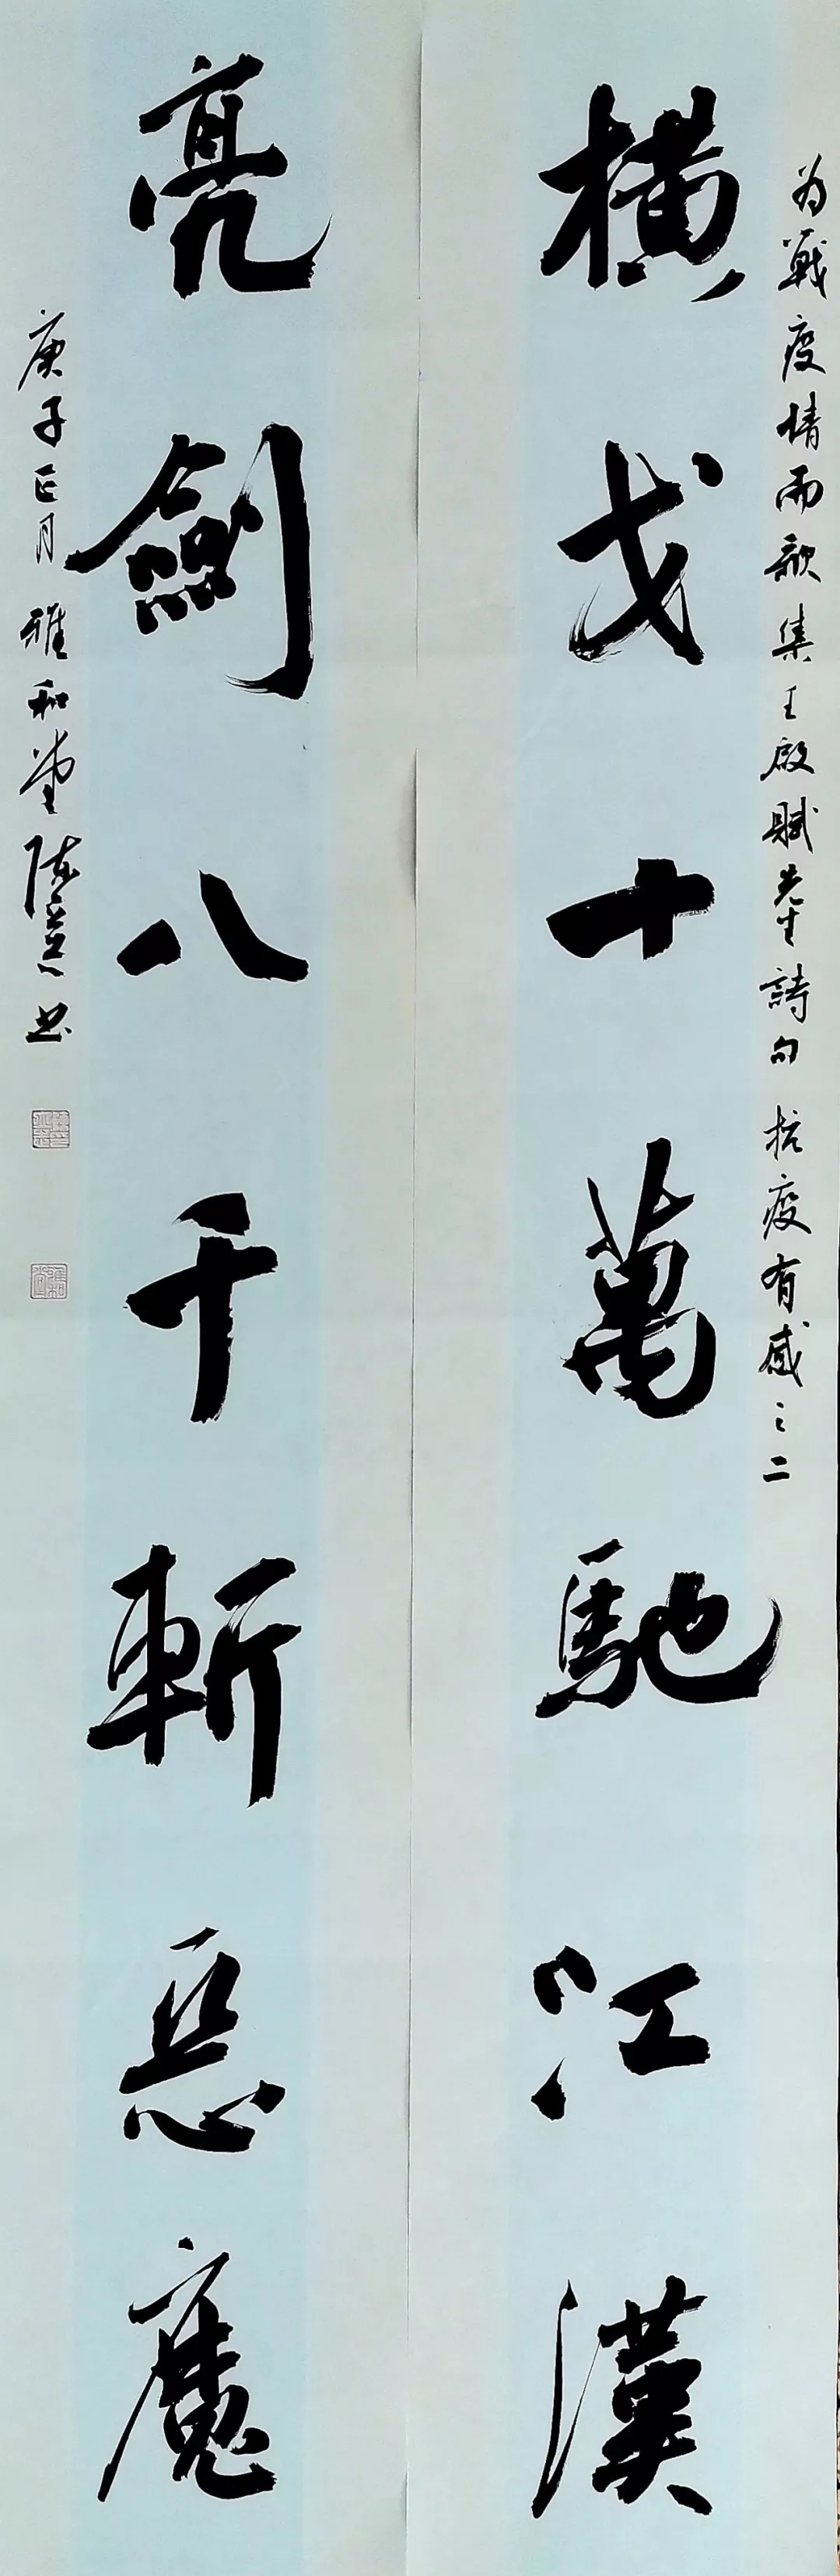 为戰疫情而歌集王啟賦先生詩句 抗疫有感之二
横戈十萬馳江漢
亮劍八千斬惡魔
庚子正月雅和堂陈意书